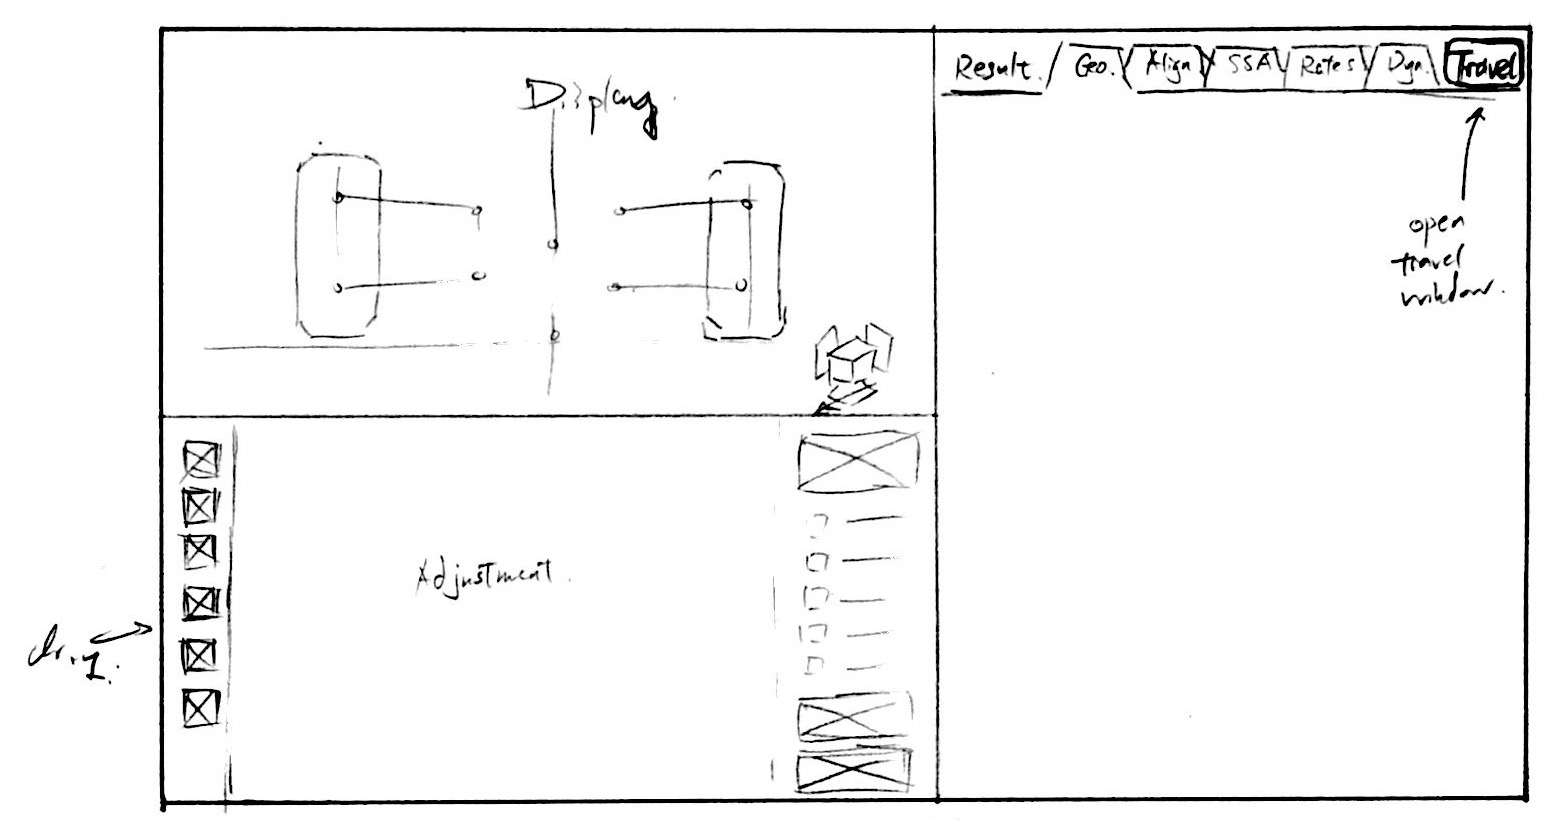 Display.
Result. Geo. Align SSA Rates Dyn. Travel
open
travel
window.
Adjustment.